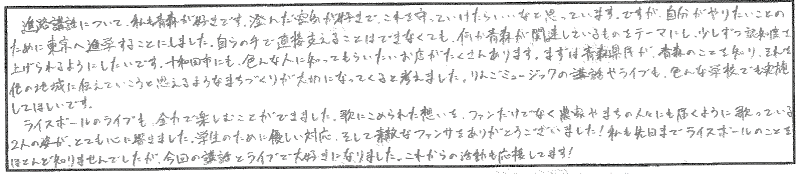 進路講話について、私も青森が好きです。澄んだ空気が好きで、これを守っていけたらいいなと思っています。ですが、自分がやりたいことの
ために東京へ進学することにしました。自らの手で直接支えることはできなくても、何か青森が関連しているものをテーマにし、少しずつ認知度を
上げられるようにしたいです。十和田市にも、色んな人に知ってもらいたいお店がたくさんあります。まずは青森県民が、青森のことを知り、それを
他の地域に伝えていこうと思えるようなまちづくりが大切になってくると考えました。りんごミュージックの講話やライブも、色んな学校でも実施
してほしいです。
ライスボールのライブも、全力で楽しむことができました。歌にこめられた想いを、ファンだけでなく農家やまちの人にも届くように歌っている
2人の姿が、とても心に響きました。学生のために優しい対応、そして素敵なファンサをありがとうございました!私も先日までライスボールのことを
ほとんど知りませんでしたが、今回の講話とライブで大好きになりました。これからの活動も応援してます!